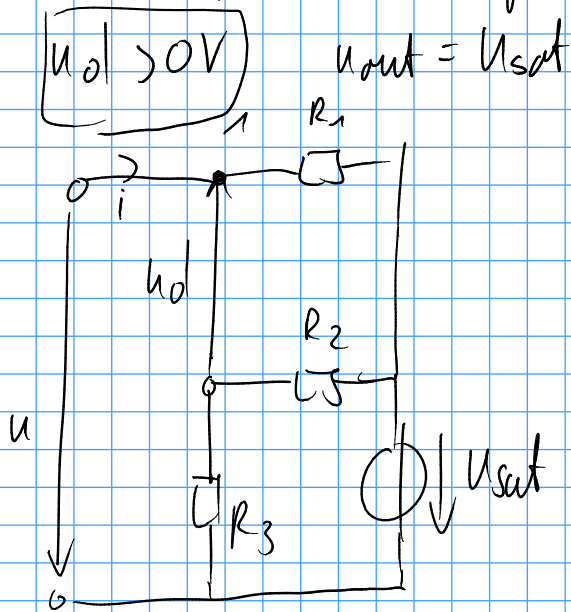 ud > 0V
uout = Usat
1
R1
i
ud
R2
u
Usat
R3